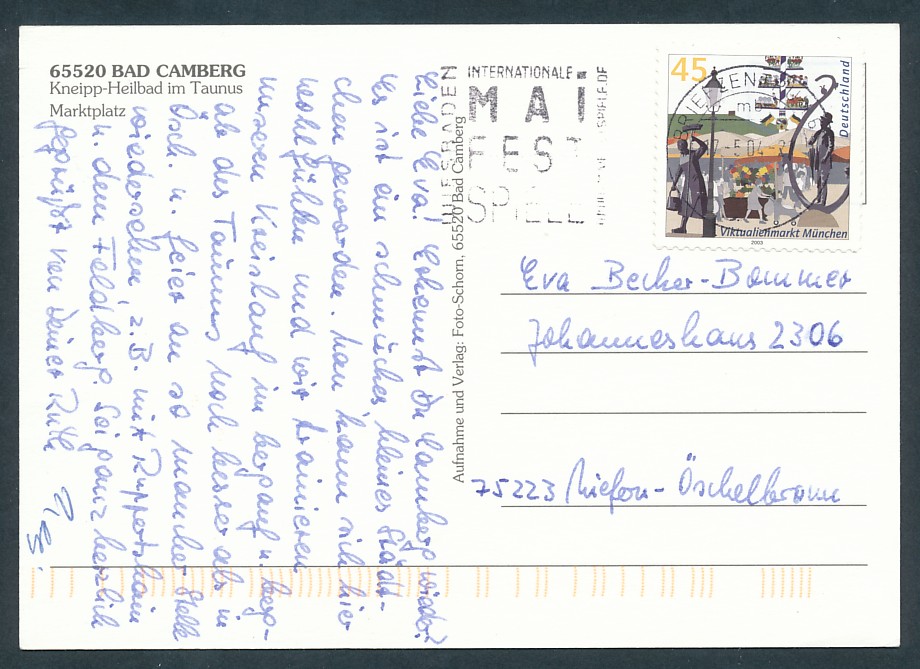 65520 BAD CAMBERG
Kneipp-Heilbad im Taunus
Marktplatz
Liebe Eva! Erkennst Du Camberg wieder?
Es ist ein schmuckes kleines Städt-
chen geworden. Man kann sich hier
wohlfühlen und wir trainieren
unseren Kreislauf im bergauf u. berg-
ab des Taunus noch besser als in
Ösch. u. feiern an so mancher Stelle
Wiedersehen z.B. mit Ruppertshain
u. dem Feldberg. Sei ganz herzlich
gegrüßt von Deiner Ruth
Aufnahme und Verlag: Foto-Schorn, 65520 Bad Camberg
WIESBADEN
INTERNATIONALE
MAI
FEST
SPIELE
BRIEFZENTRUM
45
Deutschland
Viktualienmarkt München
2003
Eva Becker-Bommer
Johanneshaus 2306
75223 Niefern-Öschelbronn